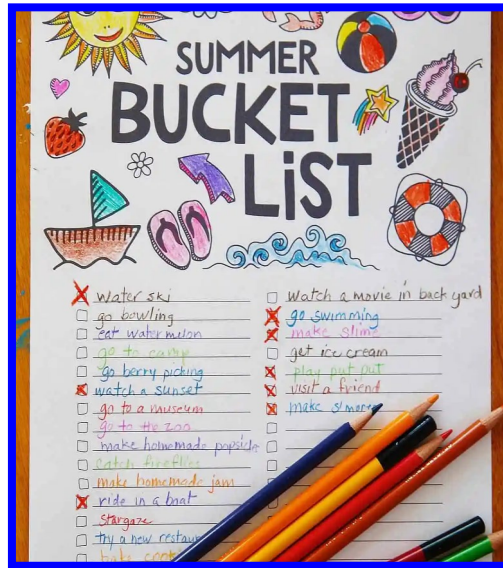 SUMMER
BUCKET
LiST
water ski
go bowling
eat watermelon
go to camp
go berry picking
watch a sunset
go to a museum
go to the zoo
make homemade popsicle
catch fireflies
make homemade jam
ride in a boat
Stargaze
try a new restau
bake
watch a movie in back yard
go swimming
make slime
get ice cream
play put put
visit a friend
make s'mores